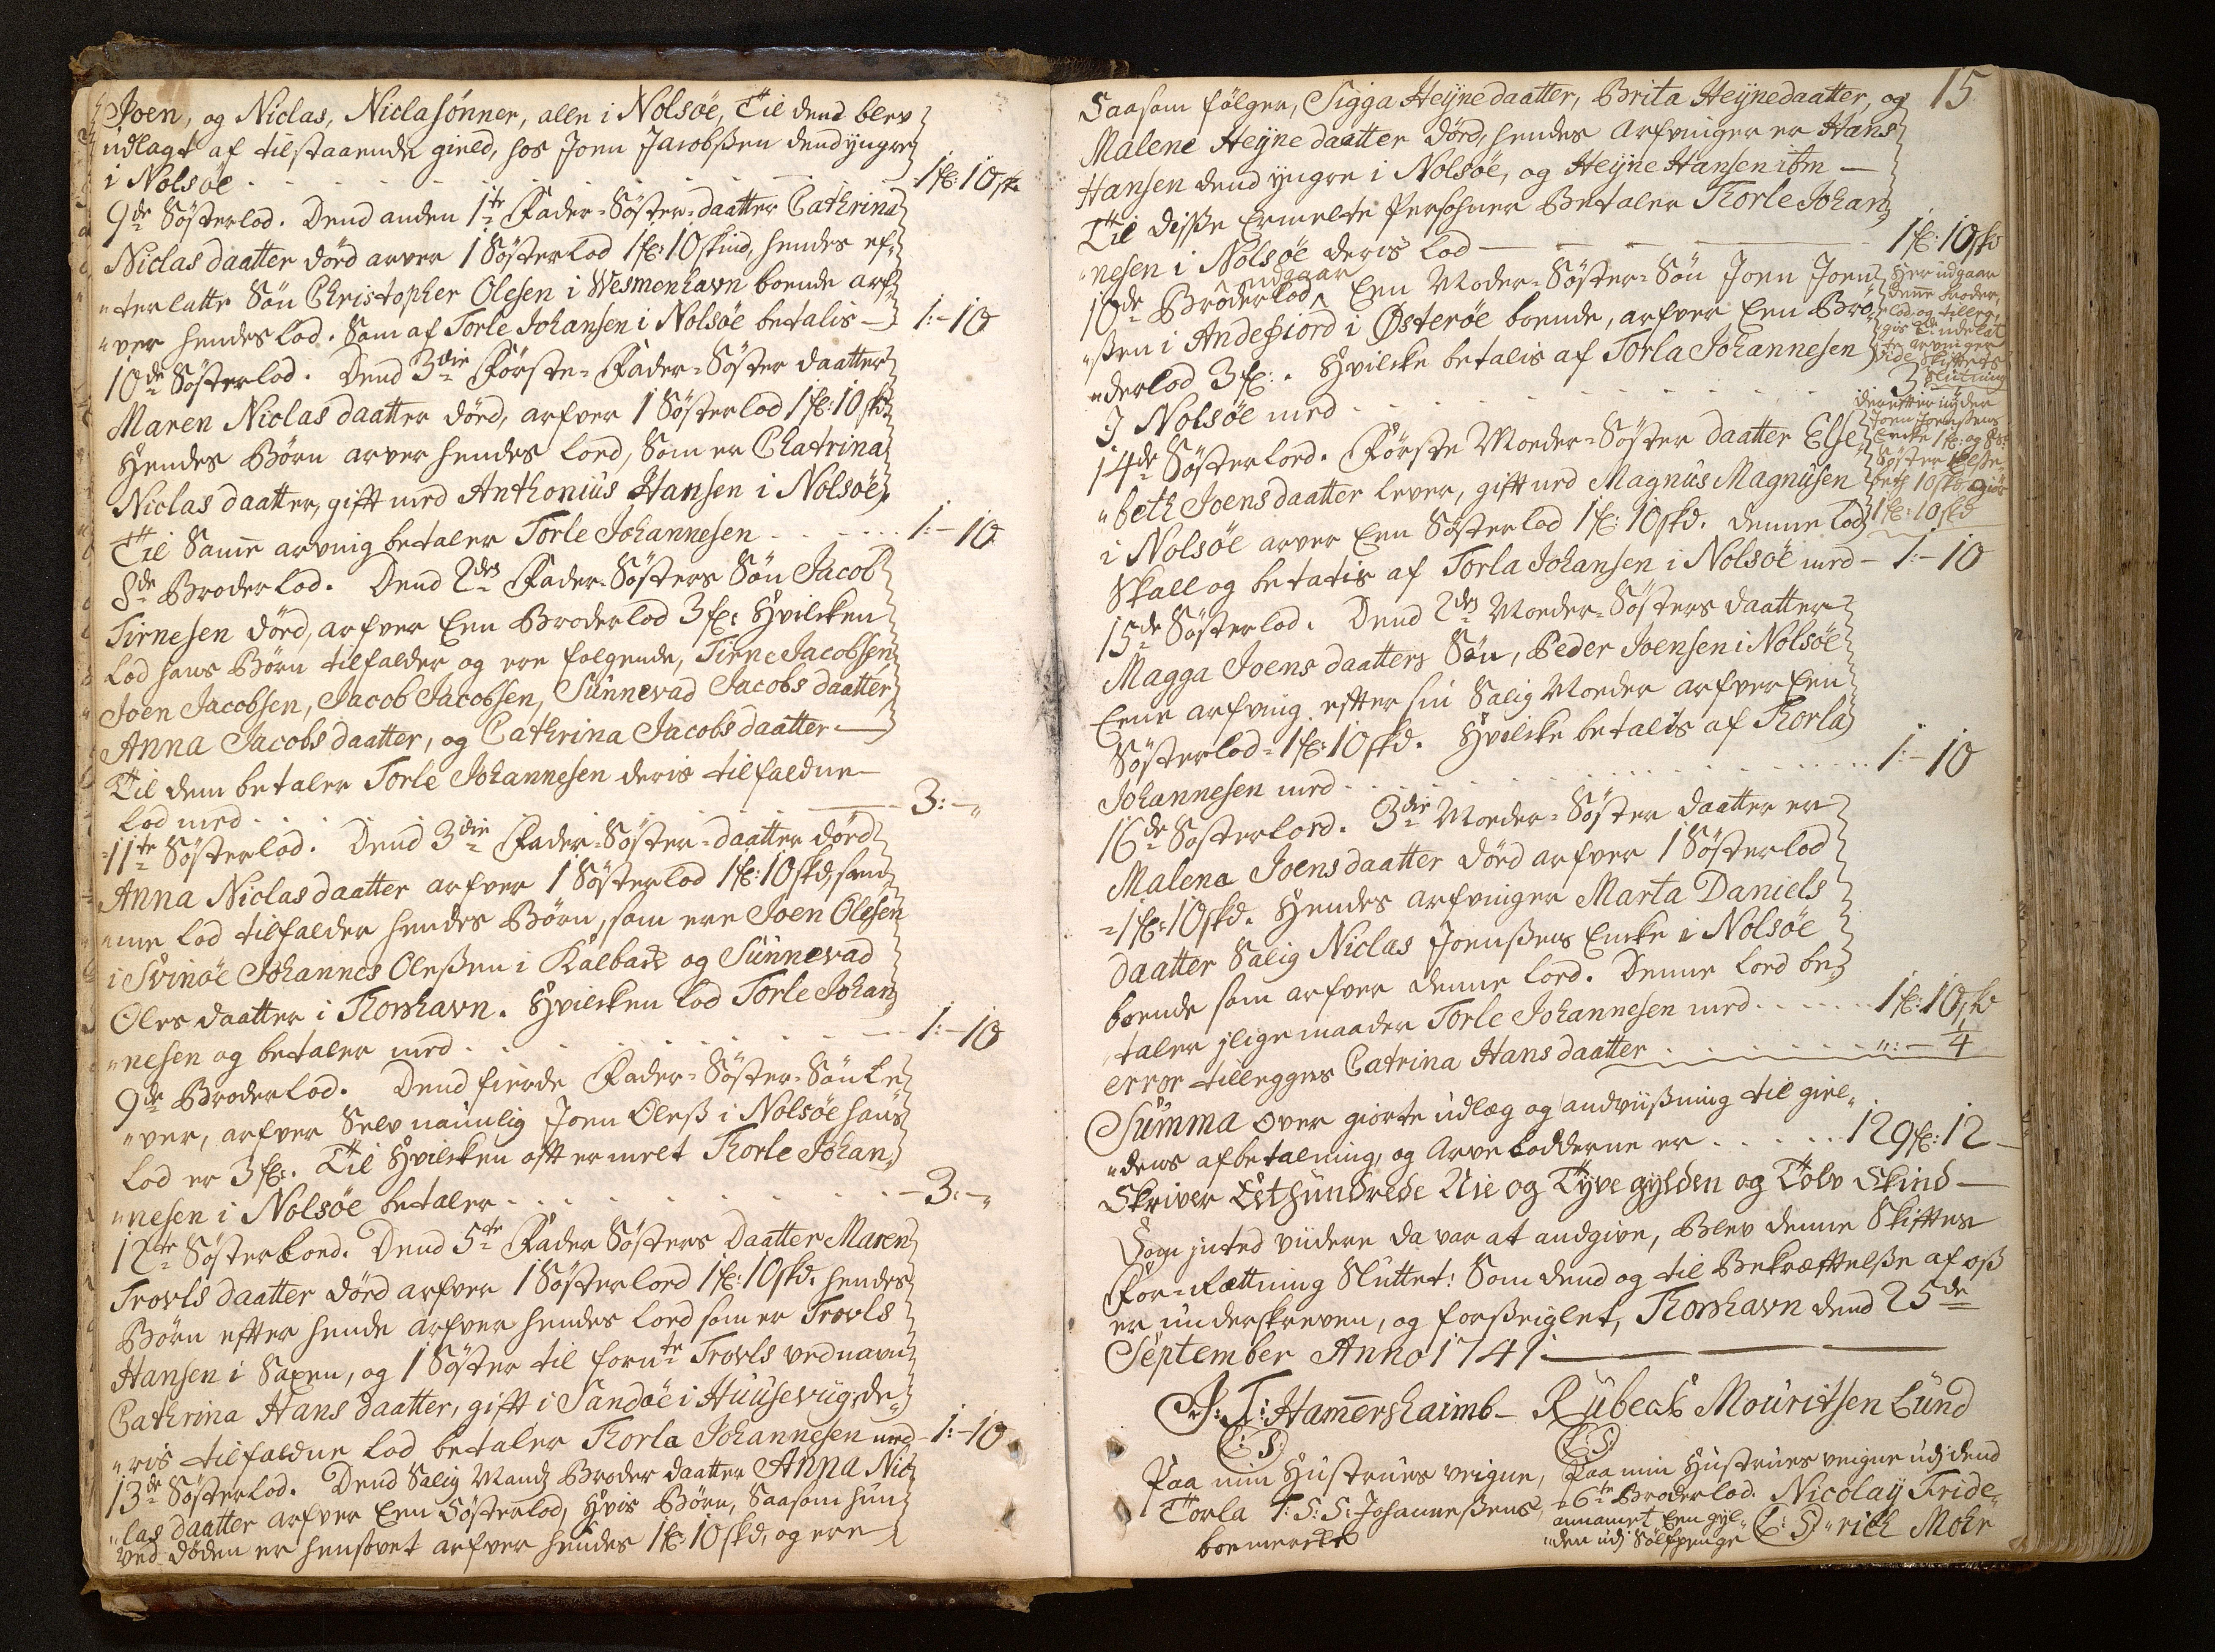 Joen, og Niclas, Niclasønner, alle i Nolsøe, Til dend blev
udlagt af tilstaaende gield, hos Joen Jacobßen dend yngre
i Nolsøe 1 f: 10 sk
9de Søsterlod. Dend anden 1te Fader-Søster-daatter Cathrina
Niclas daatter død arver 1 Søsterlod 1 f: 10 skind, hendes ef„
„terlatte Søn Christopher Olesen i Wesmenhavn boende arf„
„ver hendes lod. Som af Torle Johansen i Nolsøe betalis — 1:-10
10de Søsterlod. Dend 3die Første-Fader-Søster daatter
Maren Niclas daatter død, arfver 1 Søsterlod 1 f: 10 skd
Hendes Børn arver hendes lod, Som er Chatrina
Niclas daatter, gift med Anthonius Hansen i Nolsøe,
Til Samme arving betaler Torle Johannesen 1:-10
8de Broderlod. Dend 2den Fader-Søsters Søn Jacob
Tirnesen død, arfver Een Broderlod 3 f: Hvilcken
Lod hans Børn tilfalder og ere følgende, Tirne Jacobsen
Joen Jacobsen, Jacob Jacobsen, Sunnevad Jacobs daatter
Anna Jacobs daatter, og Cathrina Jacobs daatter —
Til dem betaler Torle Johannesen deris tilfaldne —
lod med 3:-„
11te Søsterlod. Dend 3die Fader-Søster-daatter død
Anna Niclas daatter arfver 1 Søsterlod 1 f: 10 skd, sam„
„me lod tilfalder hendes Børn, som ere Joen Olesen
i Svinøe Johannes Oleßen i Kalback og Sunnevad
Oles daatter i Thorshavn. Hvilcken lod Torle Johan„
„nesen og betaler med 1:-10
9de Broderlod. Dend fierde Fader-Søster-Søn Le„
„ver, arfver Selv naimlig Joen Oleß i Nolsøe hans
Lod er 3 f:. Til Hvilcken oft ermelt Thorle Johan„
„nesen i Nolsøe betaler 3:-„
12te Søsterlod. Dend 5te Fader Søsters Daatter Maren
Trovls daatter død arfver 1 Søsterlod 1 f: 10 skd. hendes
Børn efter hende arfver hendes lod som er Trovls
Hansen i Saxen, og 1 Søster til fornte Trovls ved navn
Cathrina Hans daatter, gift i Sandøe i Huusevüg, de„
„ris tilfaldne lod betaler Thorla Johannesen med — 1:-10
13de Søsterlod. Dend Salig Mandz Broder daatter Anna Nic„
„las daatter arfver Een Søsterlod, Hvis Børn, Saasom hun
ved døden er hensovet arfver hendes 1 f: 10 skd, og ere
15
Saasom følger, Sigga Heyne daatter, Brita Heynedaatter, og
Malene Heyne daatter død, hendes Arfvinger er Hans
Hansen dend yngre i Nolsøe, og Heyne Hansen ibm —
Til disse Ermelte Personer Betaler Thorle Johan„
„nesen i Nolsøe deris lod — 1 f: 10 sk
udgaar
10de Broderlod, Een Moder-Søster-Søn Joen Joen„
„ßen i Andefiord i Østerøe boende, arfver Een Bro„
„derlod 3 f:. Hvilcke betalis af Torla Johannesen
I Nolsøe med 3
Her udgaar
denne broder„
lod, og tilleg„
gis de udelat„
te arvinger
vide Skifftets
Slutning
derefter nyder
Joen Joenßens
Encke 1 f: og hs:
Søster Elße„
beth 10 skd, giør
1 f: 10 skd
14de Søsterlod. Første Moder-Søster daatter Else„
„beth Joens daatter lever, gift med Magnus Magnusen
i Nolsøe arver Een Søsterlod 1 f: 10 skd. denne lod
Skall og betatis af Torla Johansen i Nolsøe med — 1:-10
15de Søsterlod. Dend 2den Moder-Søsters daatter
Magga Joens daatters Søn, Peder Joensen i Nolsøe
Eene arfving efter sin Salig Moder arfver Een
Søsterlod = 1 f: 10 skd. Hvilcke betalis af Thorla
Johannesen med 1:-10
16de Søsterlod. 3die Moder-Søster daatter er
Malena Joens daatter død arfver 1 Søsterlod
= 1 f: 10 skd. Hendes arfvinger Marta Daniels
daatter Salig Niclas Joenßens Encke i Nolsøe
boende som arfver denne lod. Denne lod be„
„taler jlige maader Torle Johannesen med 1 f: 10 sk
error tillegges Catrina Hans daatter „:- 4
Summa over giorte udlæg og andvüßning til giel„
„dens afbetalning, og Arve Lodderne er 129 f: 12 —
Skriver Eethundrede Nie og Tyve gylden og Tolv Skind —
Som jnted viidere da var at andgive, Blev denne Skifftes
For-Rættning Sluttet: Som dend og til Bekræfftelße af oß
er underskreven, og forßeiglet, Thorshavn dend 25de
September Anno 1741 —
J: T: Hammershaimb — Rubeck Mouritsen Lund
(L: S.) (L: S)
Paa min Hustrues veigne,
Torla T: S: S: Johanneßens
boemercke
Paa min Hustrues veigne udj dend
6te Broderlod. Nicolay Fride„
annamet Een gyl„ (L: S) „rich Mohr
„den udj Sølfpenge